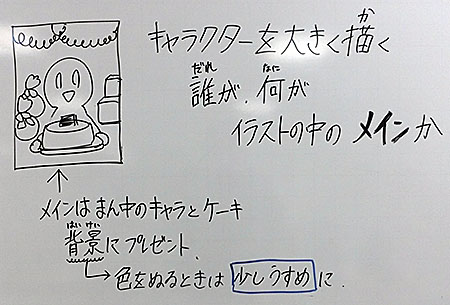 キャラクターを大きく描く
か
誰が、何が
だれ なに
イラストの中の メインか
メインは まん中のキャラとケーキ
背景にプレゼント、
はいけい
色をぬるときは 少しうすめ に